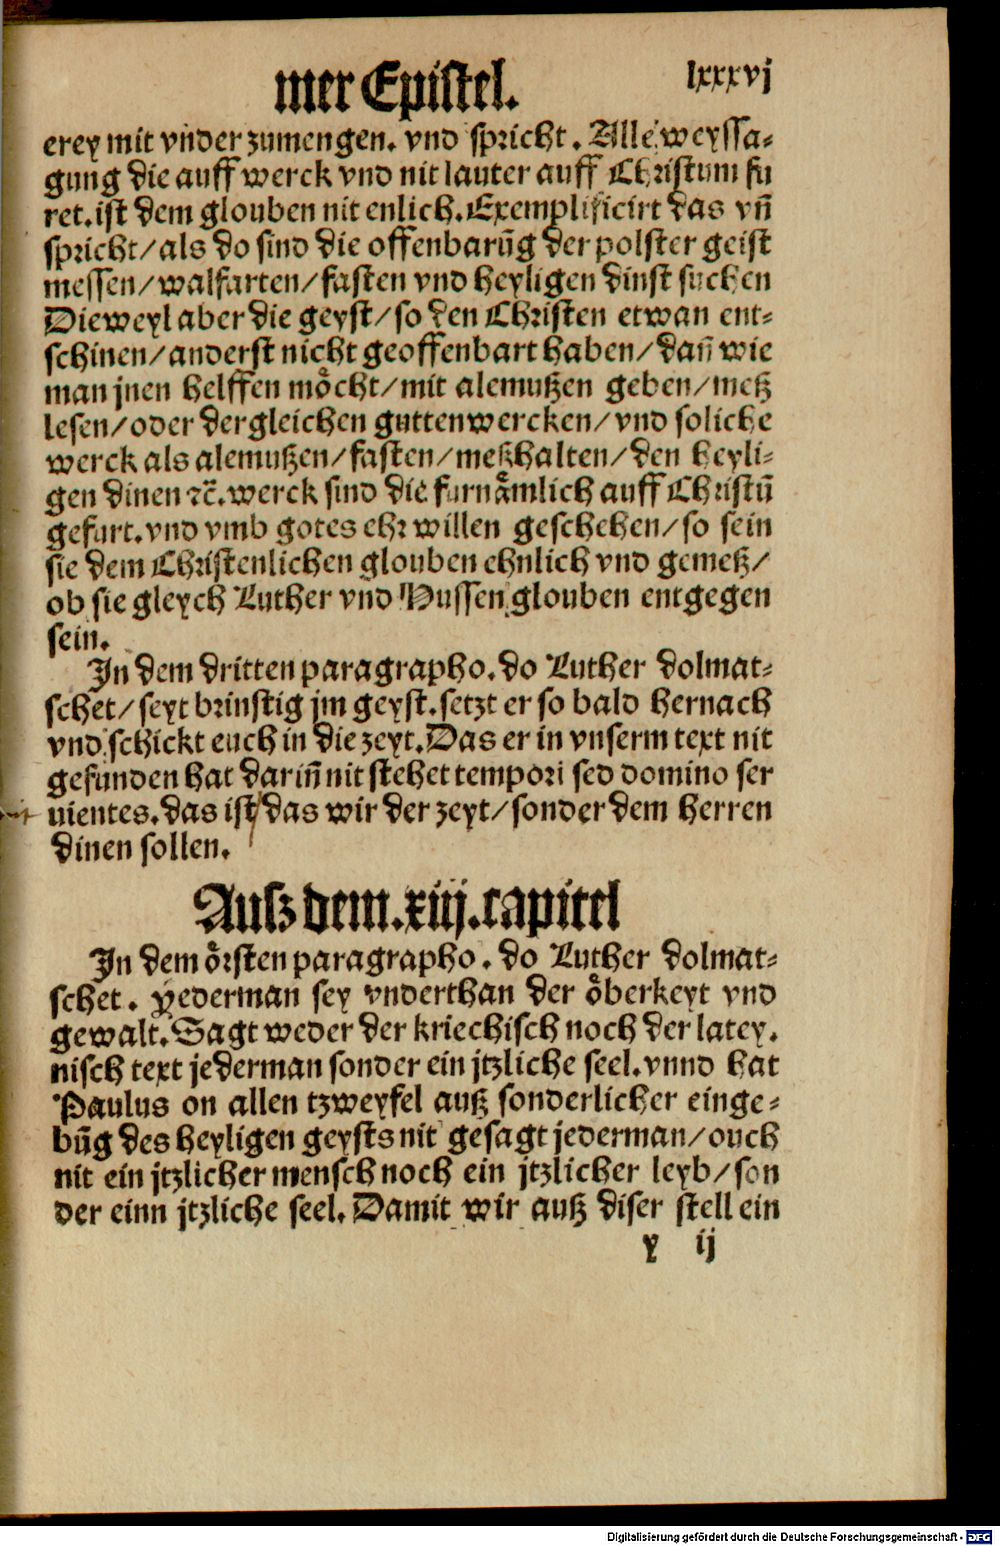 mer Epistel. lxxxvj
erey mit vnder zumengen. vnd spricht. Alle weyssa⸗
gung die auff werck vnd nit lauter auff Christum fu
ret. ist dem glouben nit enlich. Exemplificirt das vn̄
spricht/ als do sind die offenbarūg der polster geist
messen/ walfarten/ fasten vnd heyligen dinst suchen
Dieweyl aber die geyst/ so den Christen etwan ent⸗
schinen/ anderst nicht geoffenbart haben/ dan̄ wie
man jnen helffen moͤcht/ mit alemußen geben/ meß
lesen/ oder dergleichen gutten wercken/ vnd soliche
werck als alemußen/ fasten/ meßhalten/ den heyli⸗
gen dinen ꝛc̄. werck sind die furnaͤmlich auff Christū
gefurt. vnd vmb gotes ehr willen geschehen/ so sein
sie dem Christenlichen glouben ehnlich vnd gemeß/
ob sie gleych Luther vnd Hussen glouben entgegen
sein.
In dem dritten paragrapho. do Luther dolmat⸗
schet/ seyt brinstig jm geyst. setzt er so bald hernach
vnd schickt euch in die zeyt. Das er in vnserm text nit
gefunden hat darin̄ nit stehet tempori sed domino ser
uientes. das ist das wir der zeyt/ sonder dem herren
dinen sollen.
Ausz dem. xiij. capitel
In dem oͤrsten paragrapho. do Luther dolmat⸗
schet. yederman sey vnderthan der oͤberkeyt vnd
gewalt. Sagt weder der kriechisch noch der latey.
nisch text jederman sonder ein jtzliche seel. vnnd hat
Paulus on allen tzweyfel auß sonderlicher einge⸗
būg des heyligen geysts nit gesagt jederman/ ouch
nit ein jtzlicher mensch noch ein jtzlicher leyb/ son
der einn jtzliche seel. Damit wir auß diser stell ein
y ij
Digitalisierung gefördert durch die Deutsche Forschungsgemeinschaft - DFG